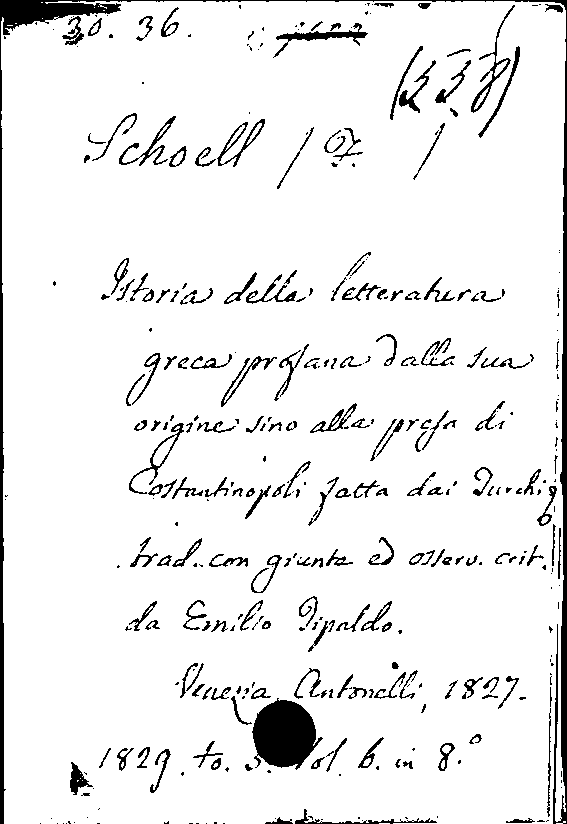 30. 36.
(358)
Schoell / F. /
Istoria della letteratura
greca profana dalla sua
origine sino alla presa di
Costantinopoli fatta dai Turchi,
trad. con giunte ed osserv. crit.
da Emilio Tipaldo.
Venezia, Antonelli, 1827-
1829. to. 5. Vol. 6. in 8.°